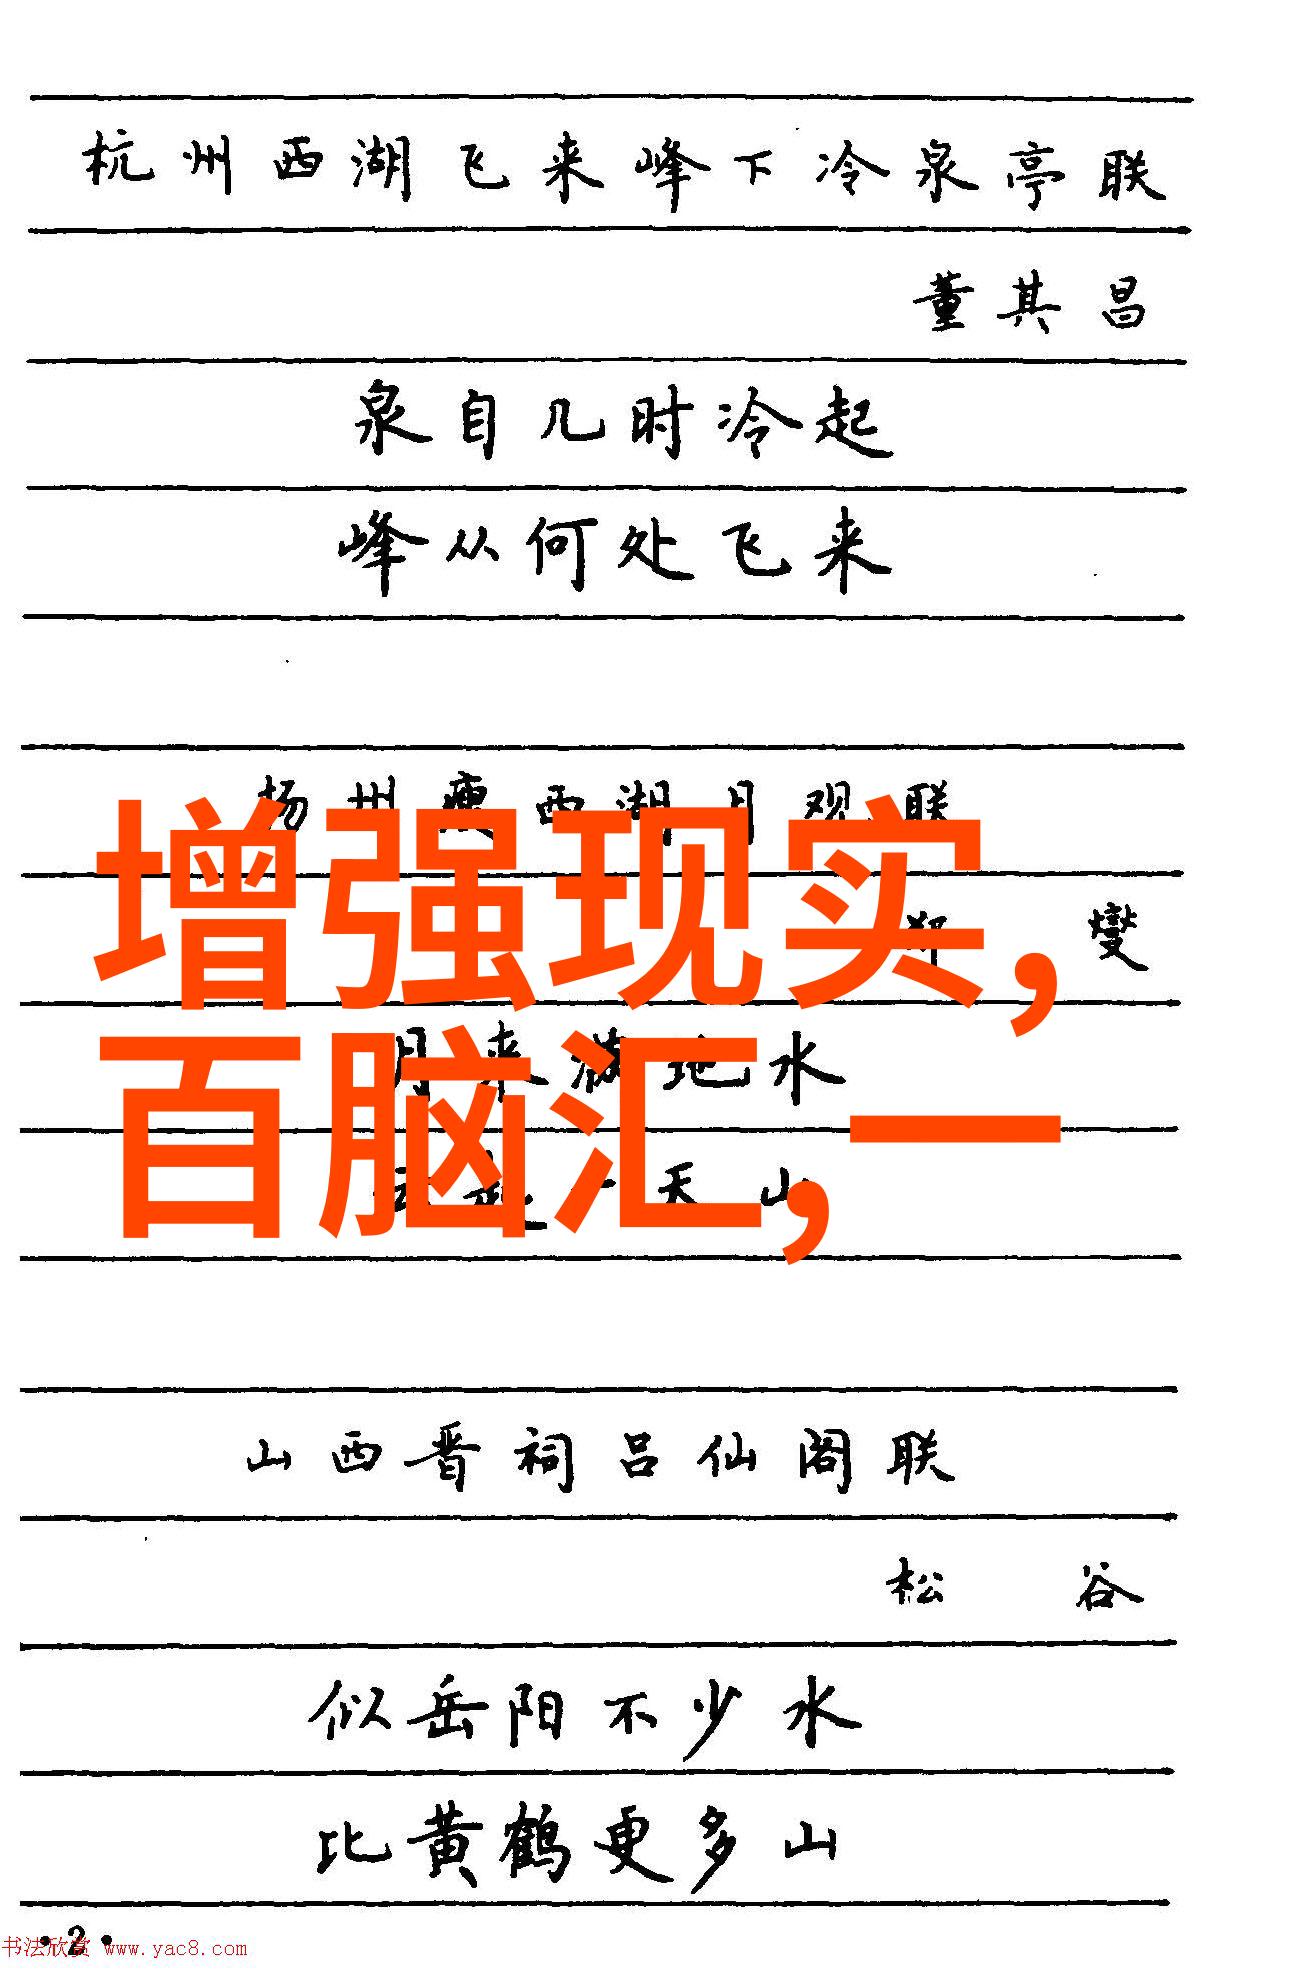 杭州西湖飞来峰下冷泉亭联
董其昌
泉自几时冷起
峰从何处飞来
扬州瘦西湖月观联
郑燮
月来满地水
云起一天山
增强现实,
百脑汇,一
山西晋祠吕仙阁联
松谷
似岳阳不少水
比黄鹤更多山
·2·
书法欣赏 www.yac8.com